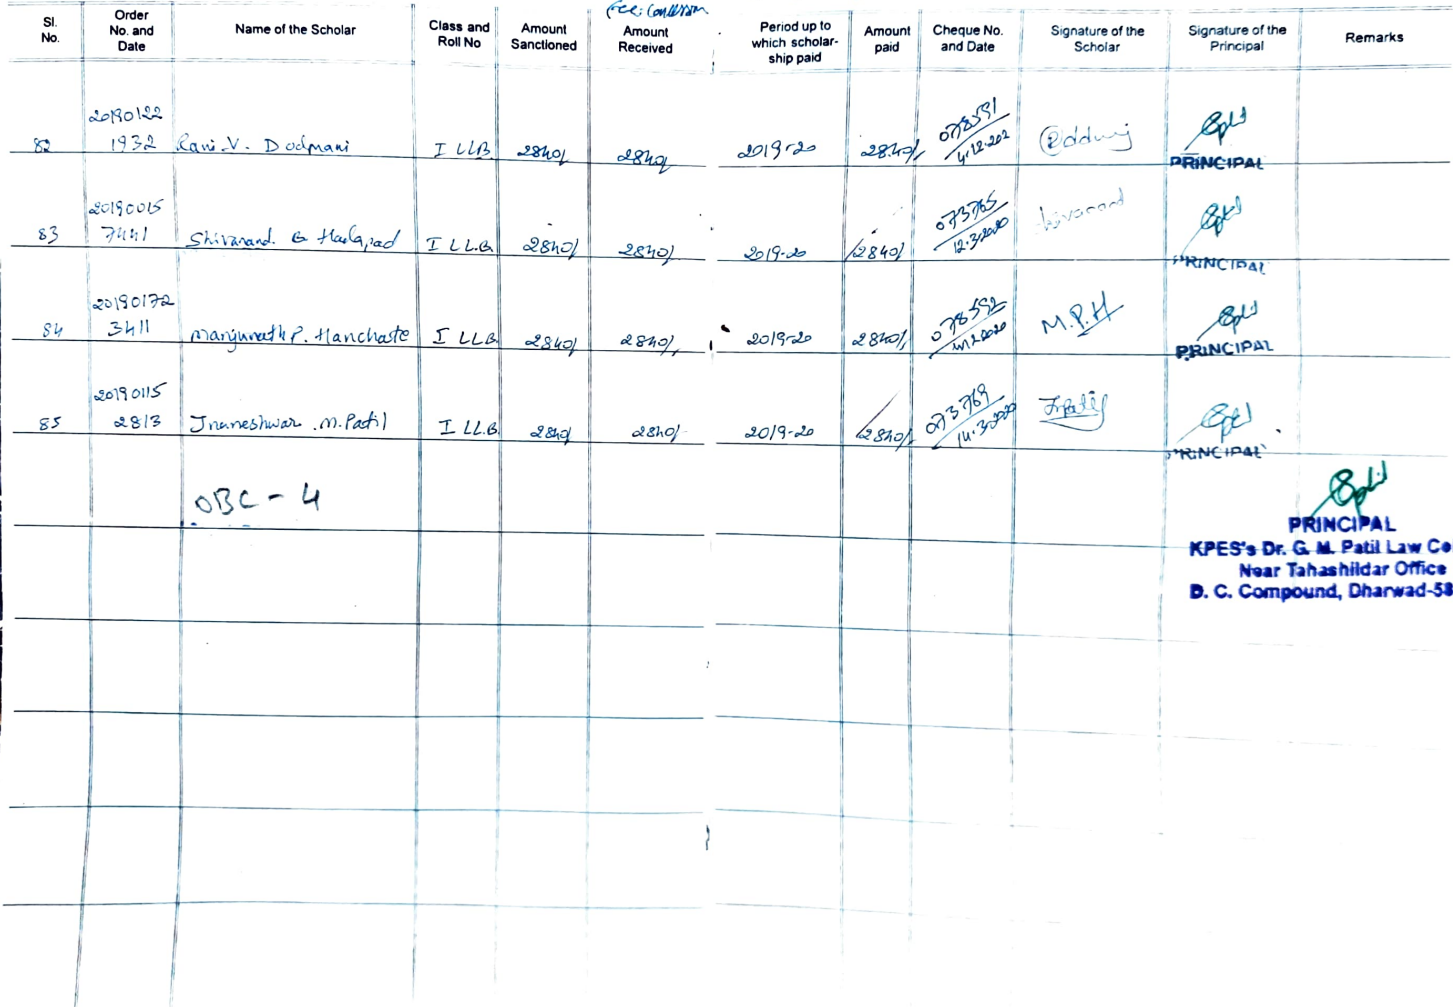 Fee: Concession
Sl. No. Order No. and Date Name of the Scholar Class and Roll No Amount Sanctioned Amount Received Period up to which scholar-ship paid Amount paid Cheque No. and Date Signature of the Scholar Signature of the Principal Remarks
82 20190122 1932 Rani V. Dodmani I LLB 2840/ 2840/ 2019-20 2840/ 078591 4.12.202 PRINCIPAL
83 20190015 7441 Shivanand. G I LL.B. 2840/ 2840/ 2019-20 2840/ 073765 12.3.2020 PRINCIPAL
84 20190172 3411 Manjunath P. Hanchate I LLB 2840/ 2840/ 2019-20 2840/ 078592 M.P.H PRINCIPAL
85 20190115 2813 Jnaneshwar .M. Patil I LL.B 2840/ 2840/- 2019-20 2840/ 073769 14.3.2020 PRINCIPAL
OBC - 4
PRINCIPAL
KPES's Dr. G. M. Patil Law Co
Near Tahashildar Office
D. C. Compound, Dharwad-58